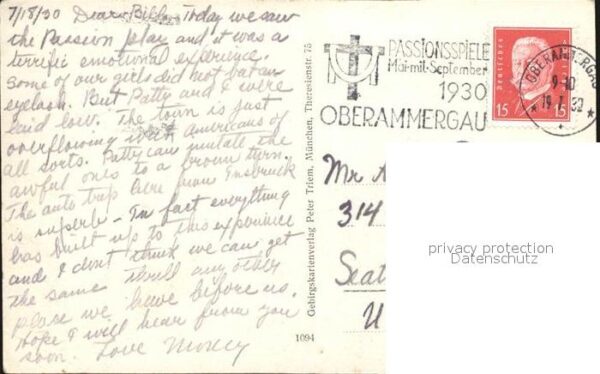 7/18/30 Dear Bill - Today we saw
the Passion play and it was a
terrific emotional experience.
Some of our girls did not bat an
eyelash. But Patty and I were
laid low. The town is just
overflowing with Americans of
all sorts. Patty can imitate the
awful ones to a brown turn.
The auto trip here from Insbruck
is superb - In fact everything
has built up to this experience
and I don't think we can get
the same thrill any other
place we have before us.
Hope I will hear from you
soon. Love
Gebirgskartenverlag Peter Triem, München, Theresienstr. 75
1094
PASSIONSSPIELE
Mai mit September
1930
OBERAMMERGAU
Deutsches Reich
15 15
OBERAMMERGAU
9-10
19.7.30
Mr A
314
Seat
U
privacy protection
Datenschutz